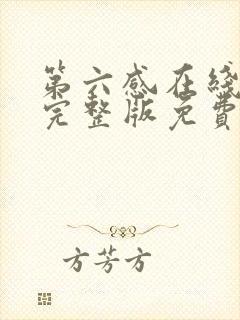 第六感在线
完整版免費
方芳方